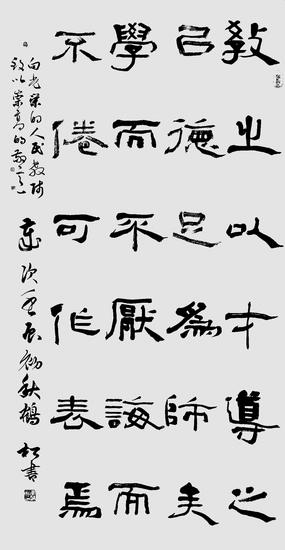 教之以才導之
以德足為師矣
學而不厭誨而
不倦可作表焉
向光榮的人民教師
致以崇高的敬意
歲次 初秋鶴 書